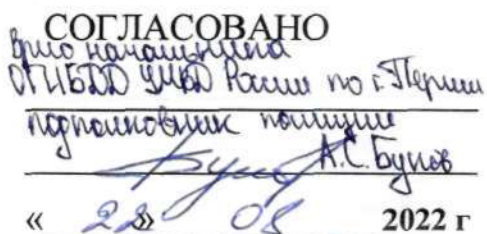 СОГЛАСОВАНО
Врио начальника
ОГИБДД УМВД России по г. Перми
подполковник полиции
А.С. Бунов
« 22 » 08 2022 г